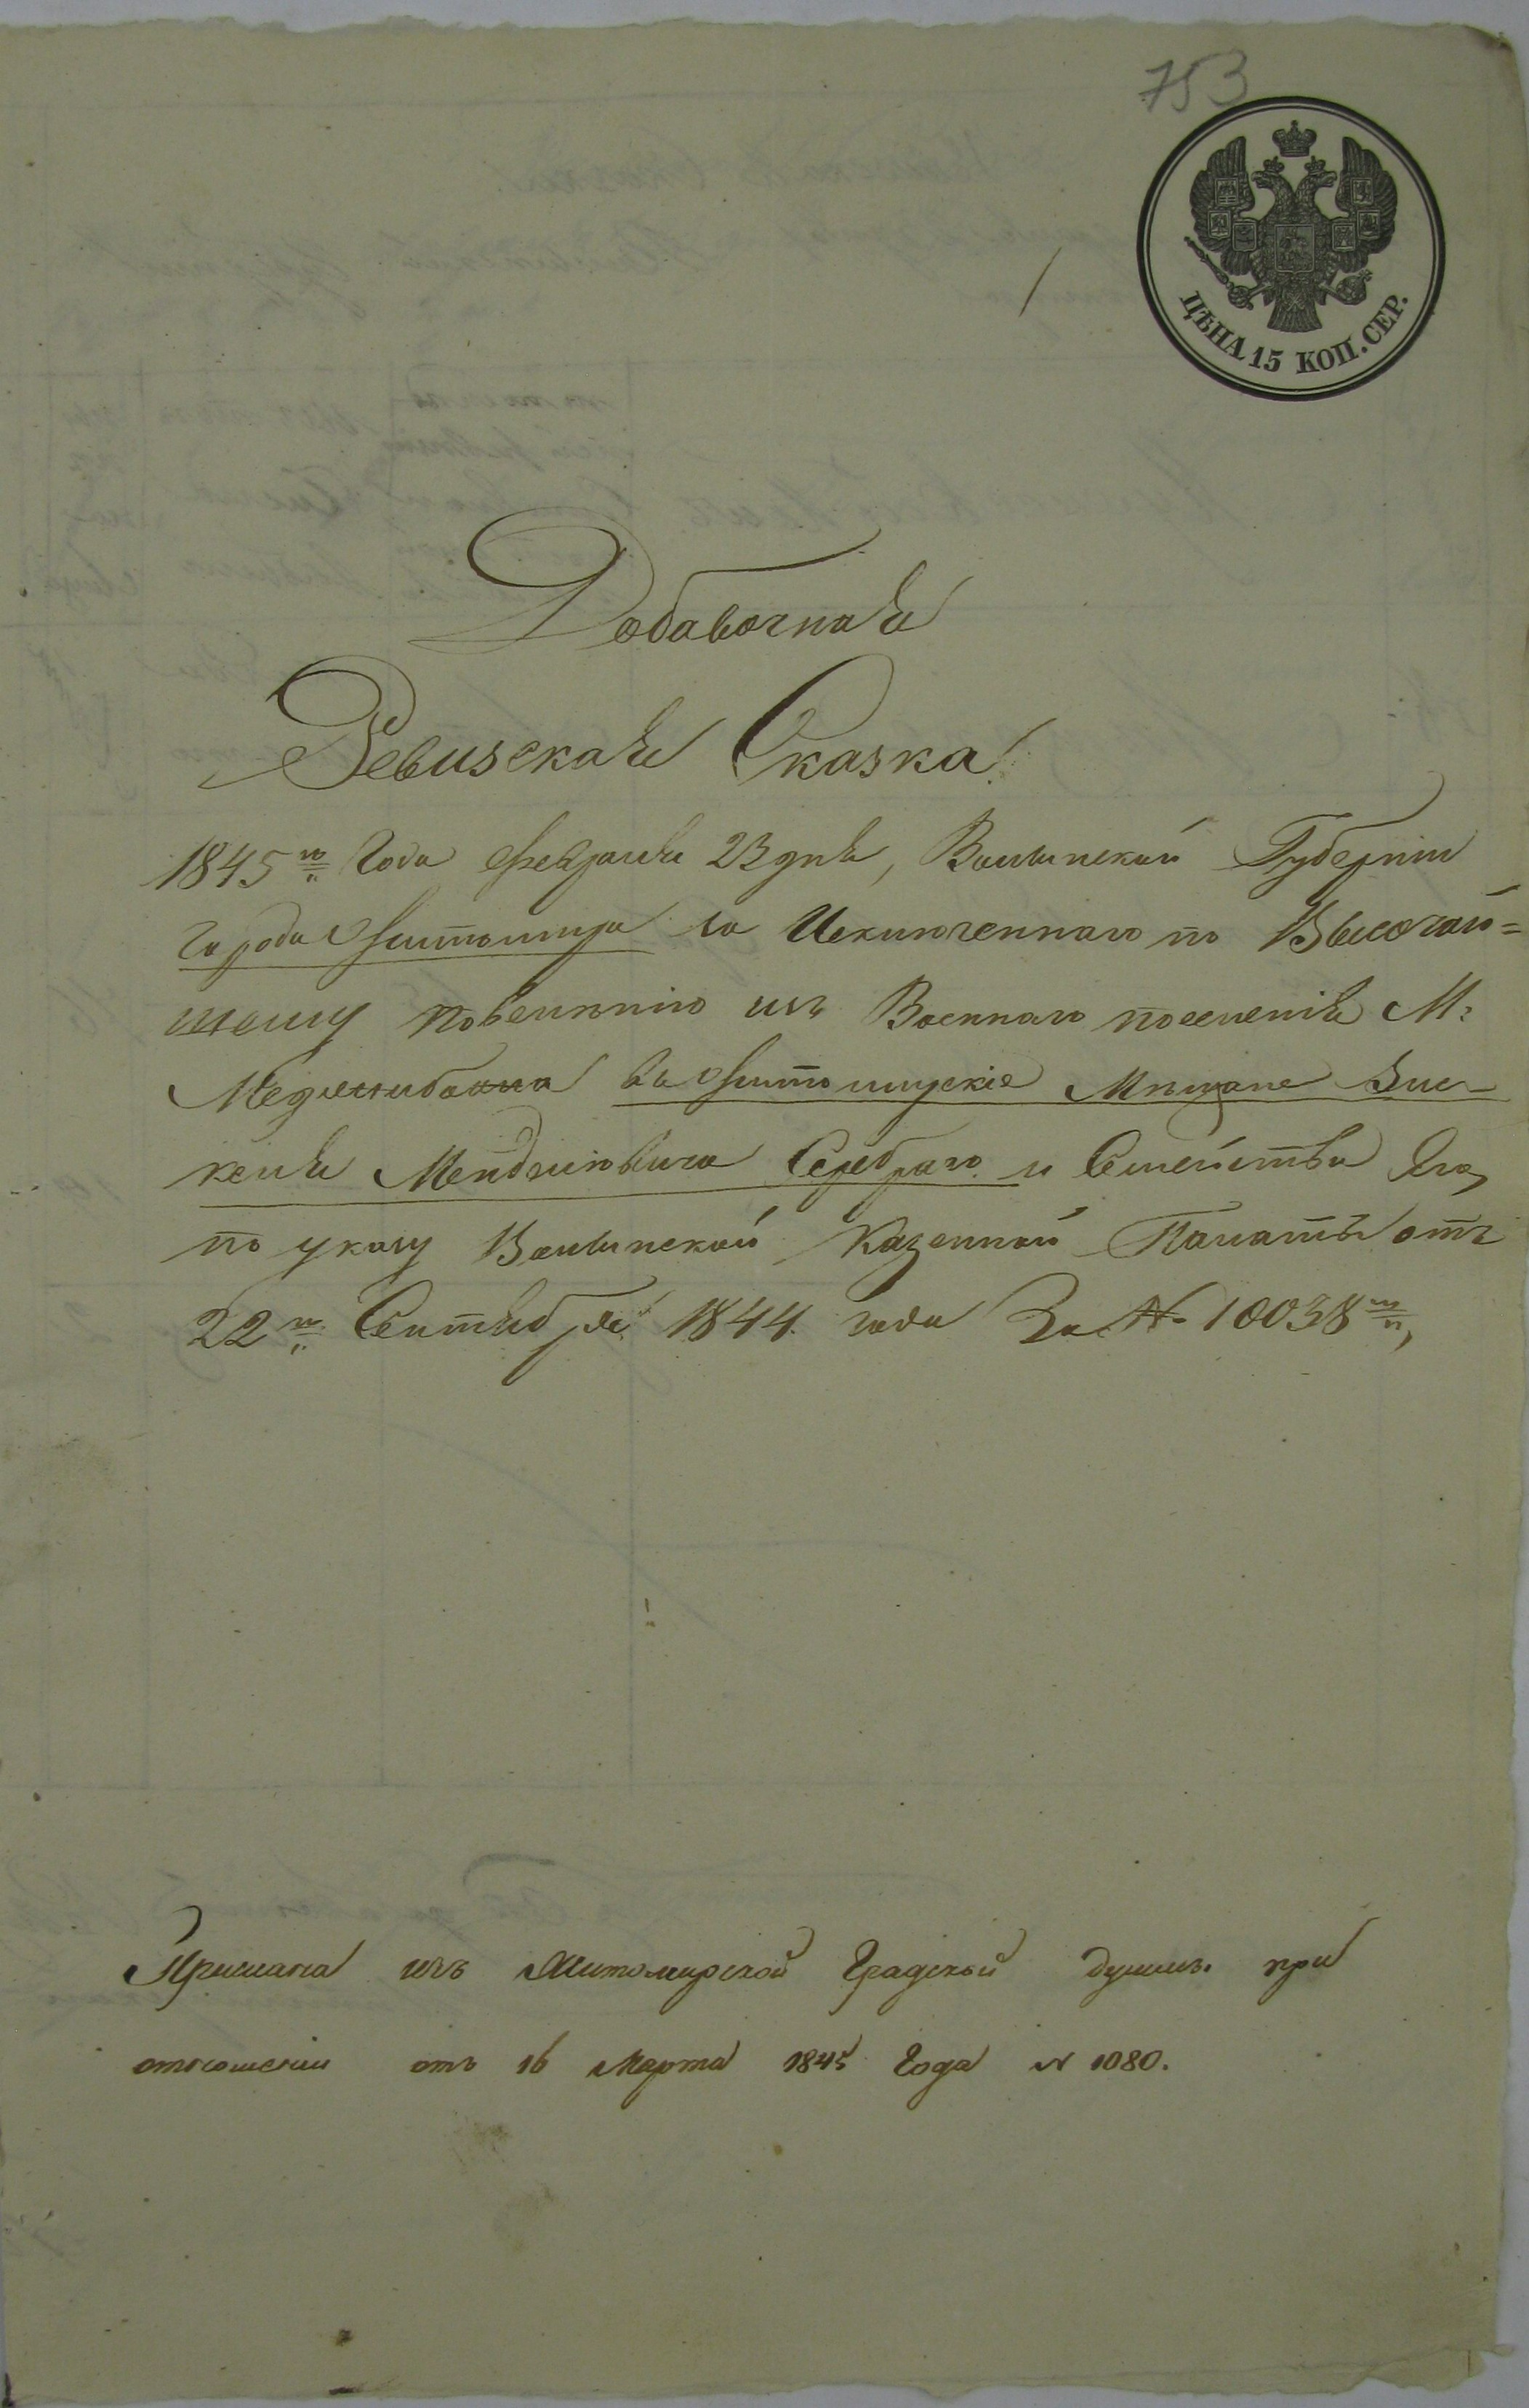 753
ЦѢНА 15 КОП. СЕР.
Добавочная
Ревизская Сказка
1845го Года февраля 23 дня, Волынской Губерніи
Города Житомира о Исключенного по Высочай=
шему повелѣнію изъ Военнаго поселенія М:
Меджибожа въ Житомирскіе Мѣщане Зис-
келя Менделиовича Серебраго и Семейства Его,
по указу Волынской Казенной Палаты отъ
22го Сентября 1844 года За № 10038мъ,
Прислана изъ Житомирской Градской думы при
отношеніи отъ 16 Марта 1845 Года N 1080.